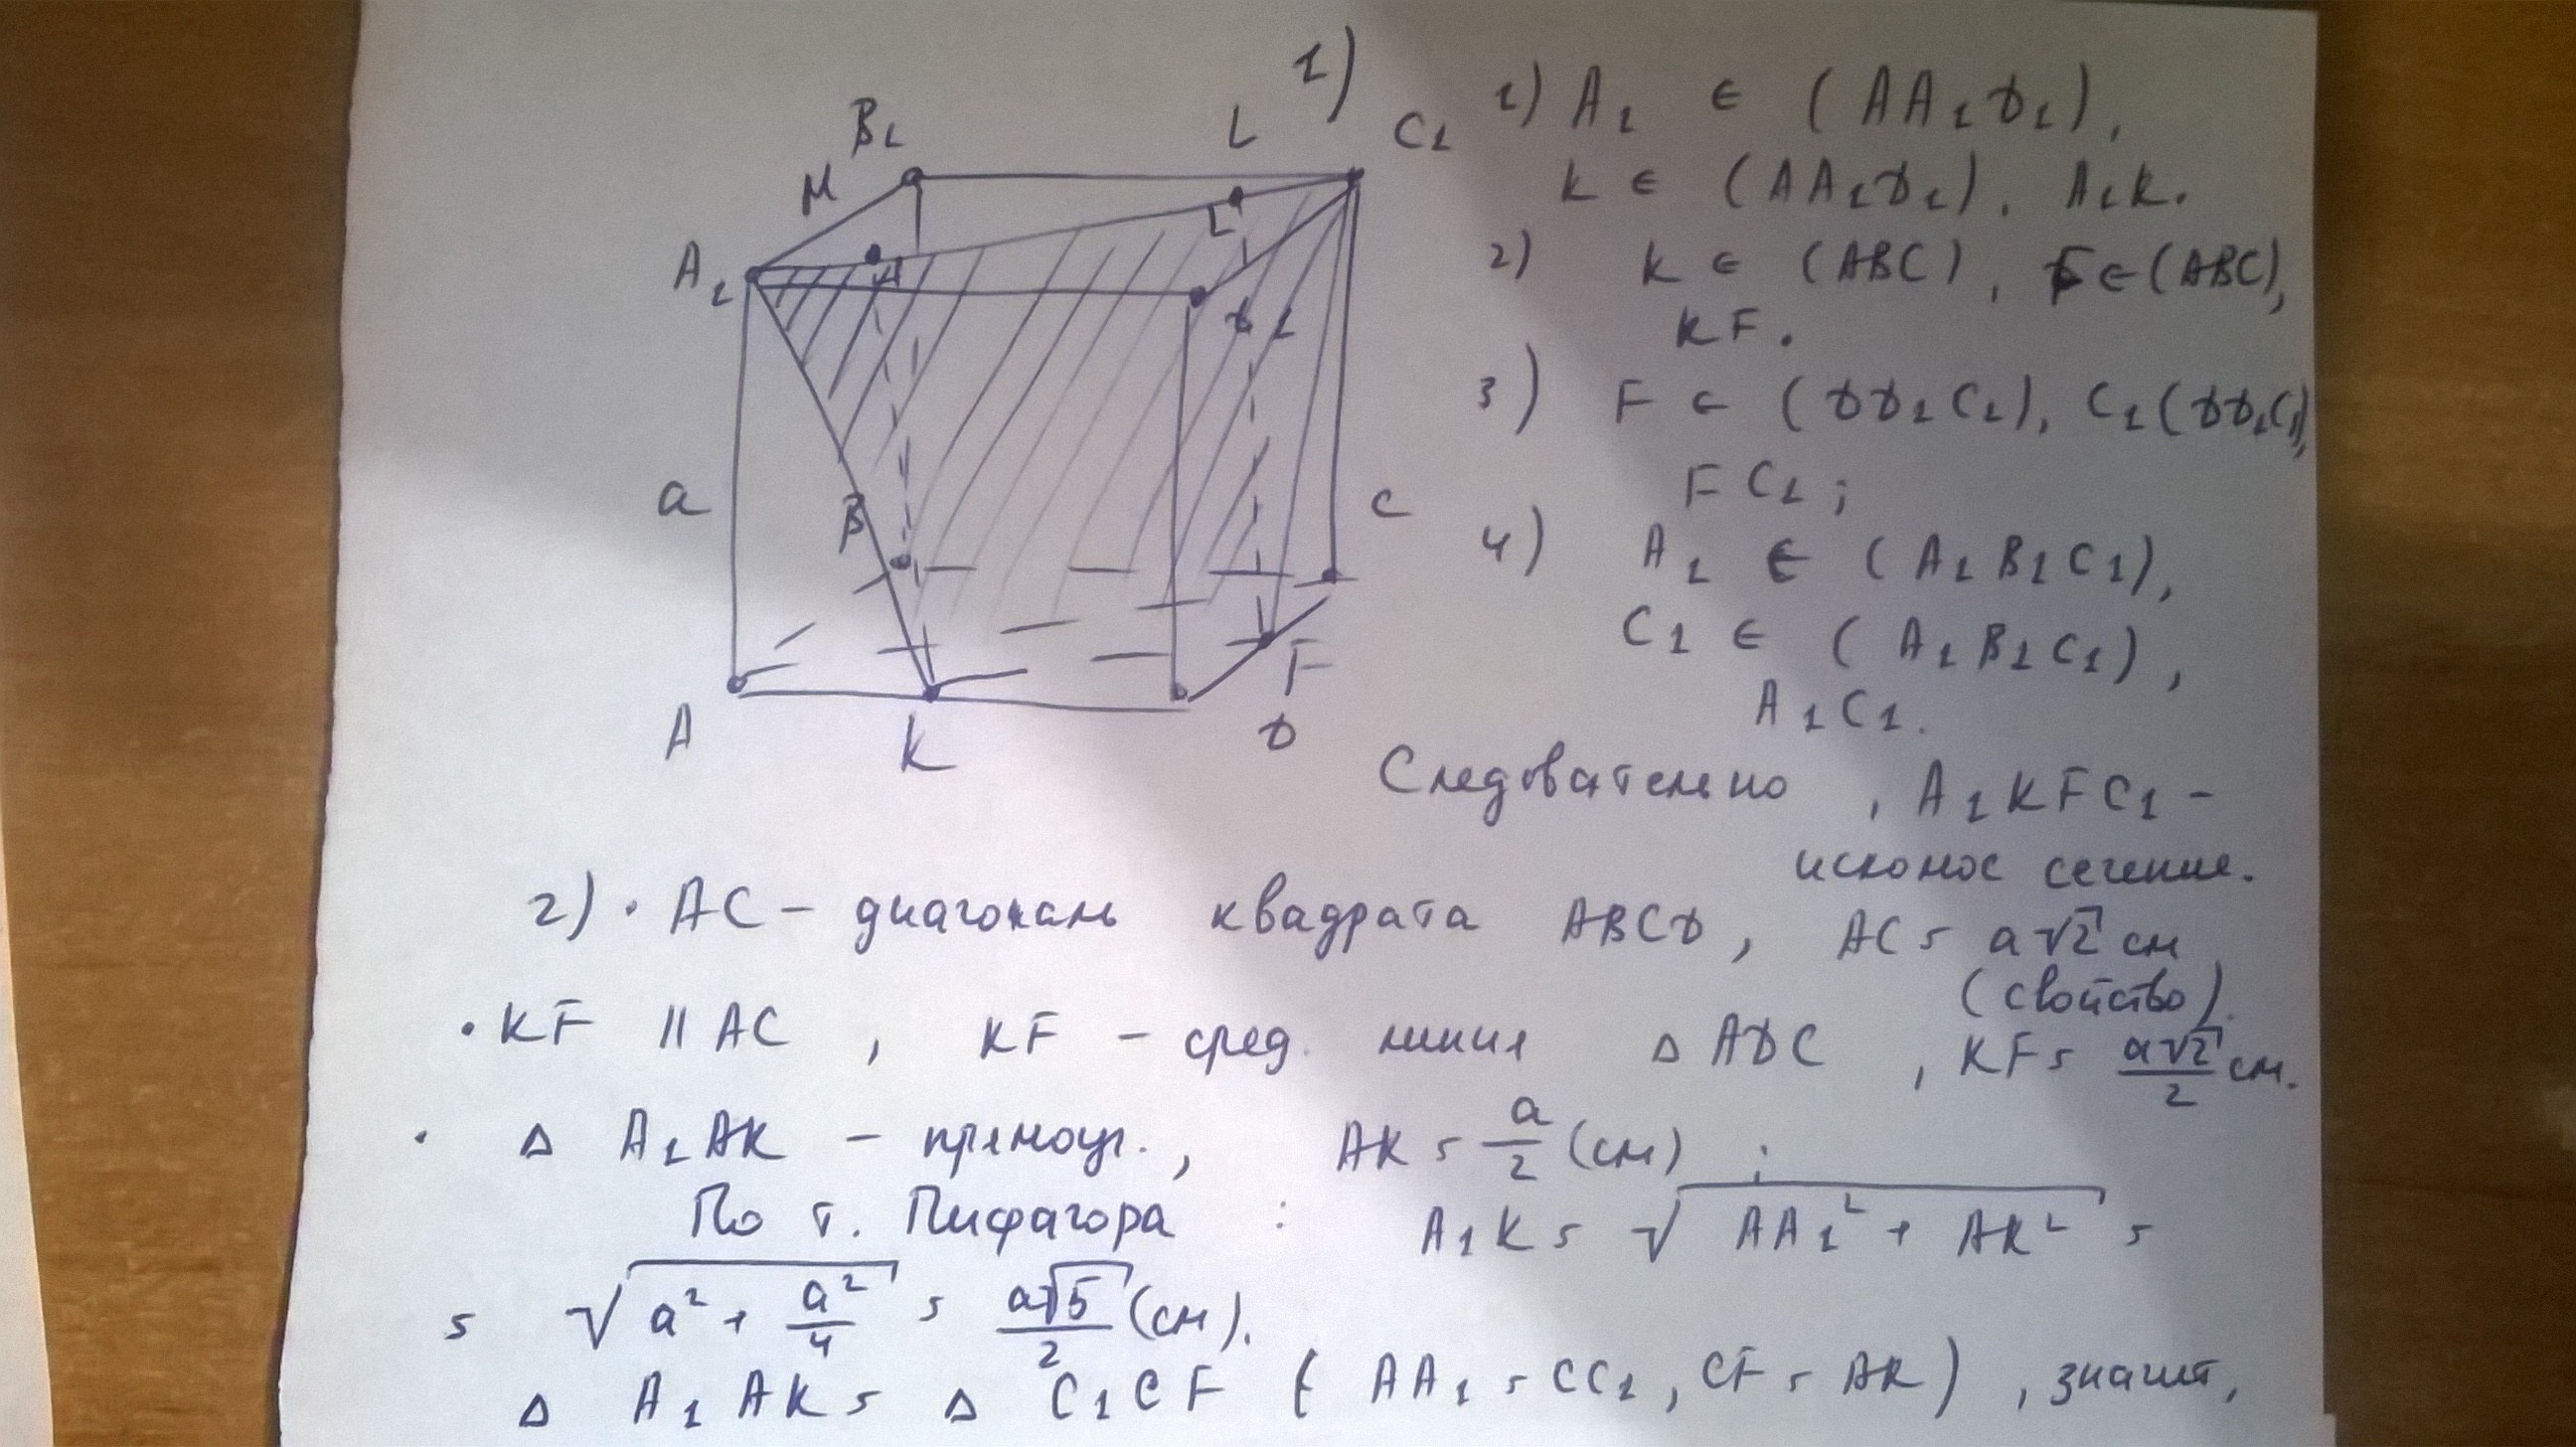 1)
B₁
L
C₁
M
A₁
H
L
D₁
a
B
C
F
A
K
D
1) A₁ ∈ (AA₁D₁),
K ∈ (AA₁D₁). A₁K.
2) K ∈ (ABC), F ∈ (ABC),
KF.
3) F ∈ (DD₁C₁), C₁(DD₁C₁),
FC₁;
4) A₁ ∈ (A₁B₁C₁),
C₁ ∈ (A₁B₁C₁),
A₁C₁.
Следовательно, A₁KFC₁ -
искомое сечение.
2) · AC - диагональ квадрата ABCD, AC = a√2 см
(свойство).
· KF || AC, KF - сред. линия Δ ADC, KF = a√2/2 см.
· Δ A₁AK - прямоуг., AK = a/2 (см);
По т. Пифагора: A₁K = √(AA₁² + AK²) =
= √(a² + a²/4) = a√5/2 (см).
Δ A₁AK = Δ C₁CF (AA₁ = CC₁, CF = AK), значит,